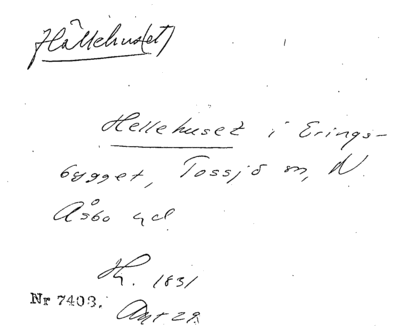 Hällehus(et)
Hellehuset i Erings-
bygget, Tossjö sn, N.
Åsbo hd.
Hf. 1831
Nr 7403. Ant 29.